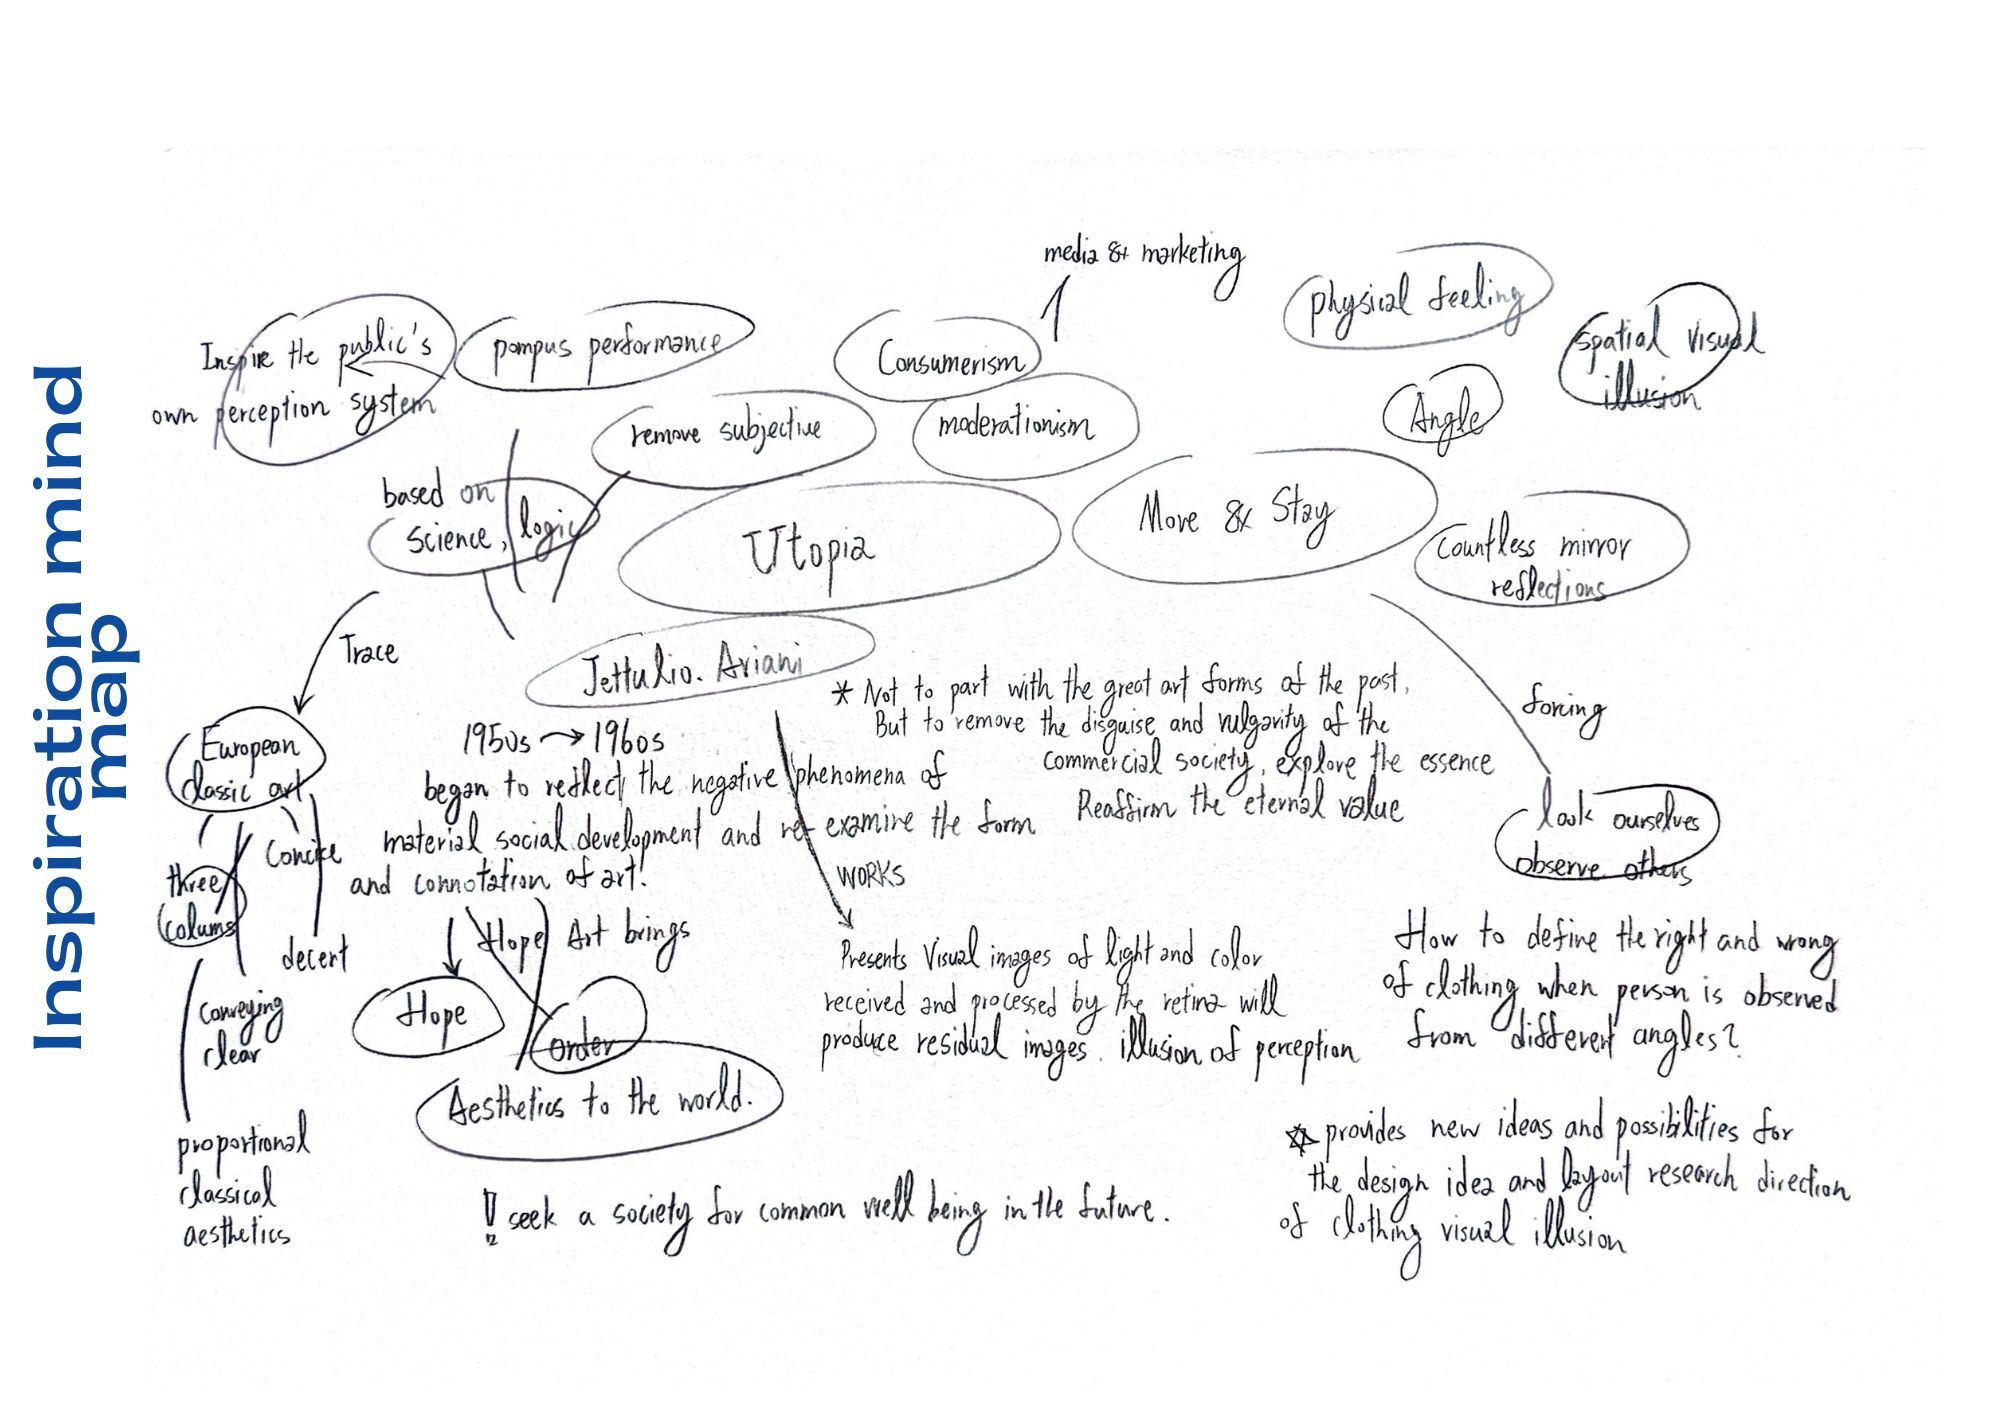 Inspiration mind
map
media & marketing
physical feeling
spatial visual
illusion
Inspire the public's
own perception system
pompus performance
Consumerism
Angle
remove subjective
moderationism
based on
science, logic
Utopia
Move & Stay
Countless mirror
reflections
Trace
Jettulio. Ariani
* Not to part with the great art forms of the past.
But to remove the disguise and vulgarity of the
commercial society, explore the essence
Reaffirm the eternal value
forcing
European
classic art
1950s → 1960s
began to reflect the negative phenomena of
material social development and re-examine the form
and connotation of art.
look ourselves
observe others
three
colums
Concise
decent
conveying
clear
proportional
classical
aesthetics
Hope
Art brings
Hope
order
Aesthetics to the world.
WORKS
Presents Visual images of light and color
received and processed by the retina will
produce residual images. illusion of perception
How to define the right and wrong
of clothing when person is observed
from different angles?
provides new ideas and possibilities for
the design idea and layout research direction
of clothing visual illusion
seek a society for common well being in the future.